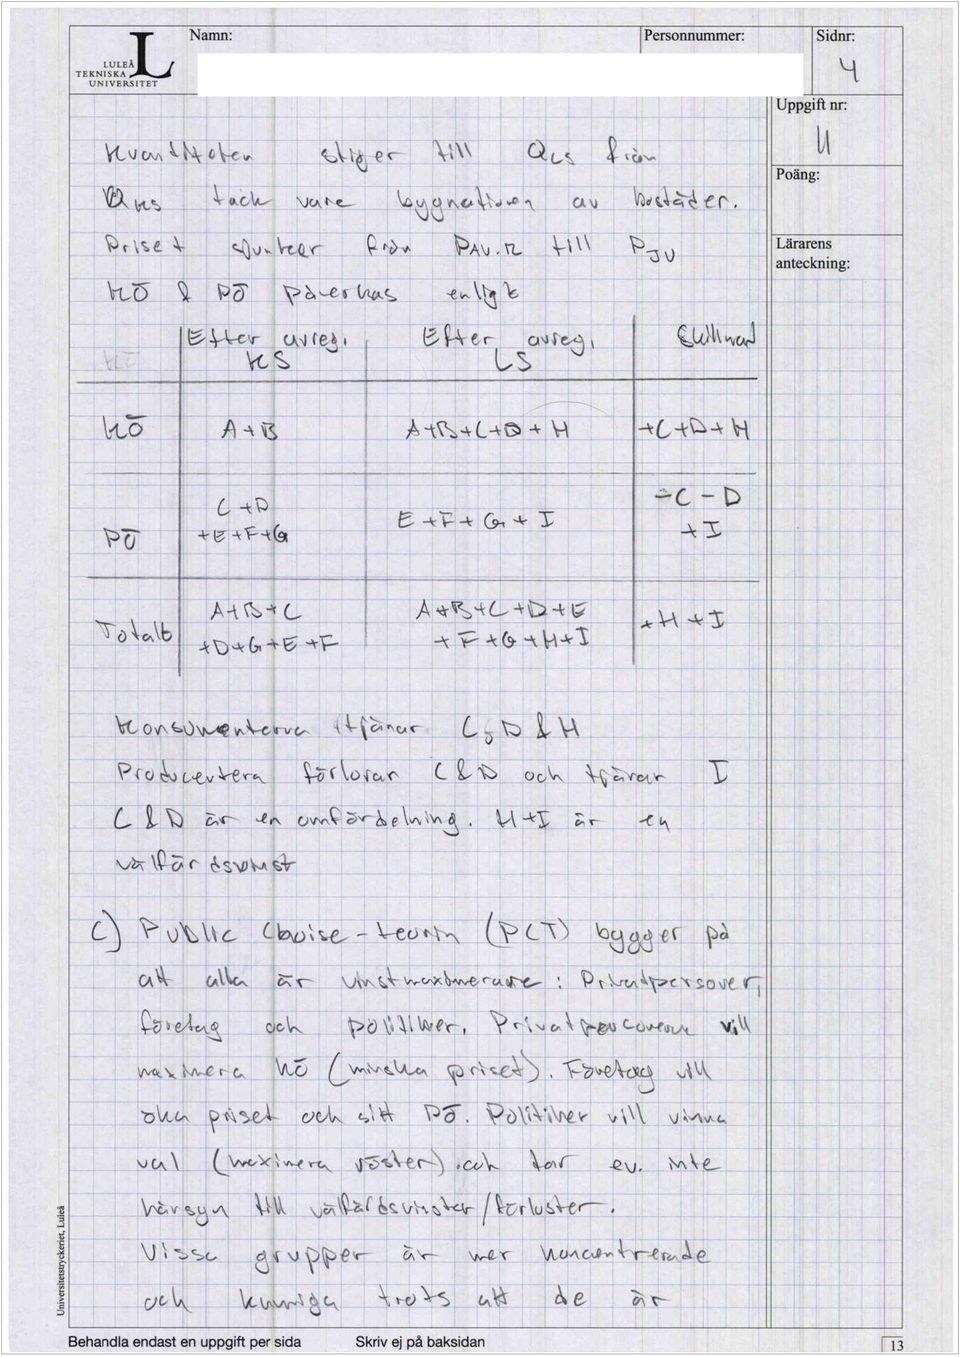 LULEÅ
TEKNISKA
UNIVERSITET
Namn:
Personnummer:
Sidnr:
4
Uppgift nr:
4
Poäng:
Lärarens
anteckning:
Kvantiteten stiger till QLS från
QKS tack vare bygnationen av bostäder.
Priset sjunker från PAV.R till PJU
KÖ & PÖ påverkas enligt
Efter avreg. KS | Efter avreg. LS | Skillnad
KÖ | A+B | A+B+C+D+H | +C+D+H
PÖ | C+D+E+F+G | E+F+G+I | -C-D+I
Totalt | A+B+C+D+G+E+F | A+B+C+D+E+F+G+H+I | +H+I
Konsumenterna tjänar C, D & H
Producentera förlorar C & D och tjänar I
C & D är en omfördelning. H+I är en
välfärdsvinst
C) Public Choise-teorin (PCT) bygger på
att alla är vinstmaximerare: Privatpersoner,
företag och politiker. Privatpersonerna vill
maximera KÖ (minska priset). Företag vill
öka priset och sitt PÖ. Politiker vill vinna
val (maximera röster) och tar ev. inte
hänsyn till välfärdsvinster/förluster.
Vissa grupper är mer koncentrerade
och kunniga trots att de är
Universitetstryckeriet, Luleå
Behandla endast en uppgift per sida
Skriv ej på baksidan
13